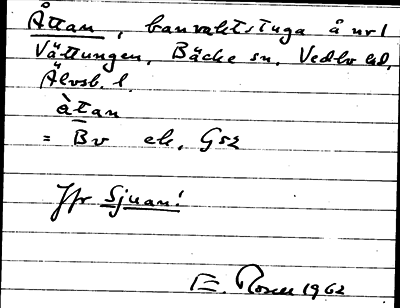 Åttan, banvaktstuga å nr 1
Vättungen, Bäcke sn, Vedbo hd,
Älvsb. l.
àtan
= Bv ek. G52
Jfr Sjuan!
E. Rosell 1962